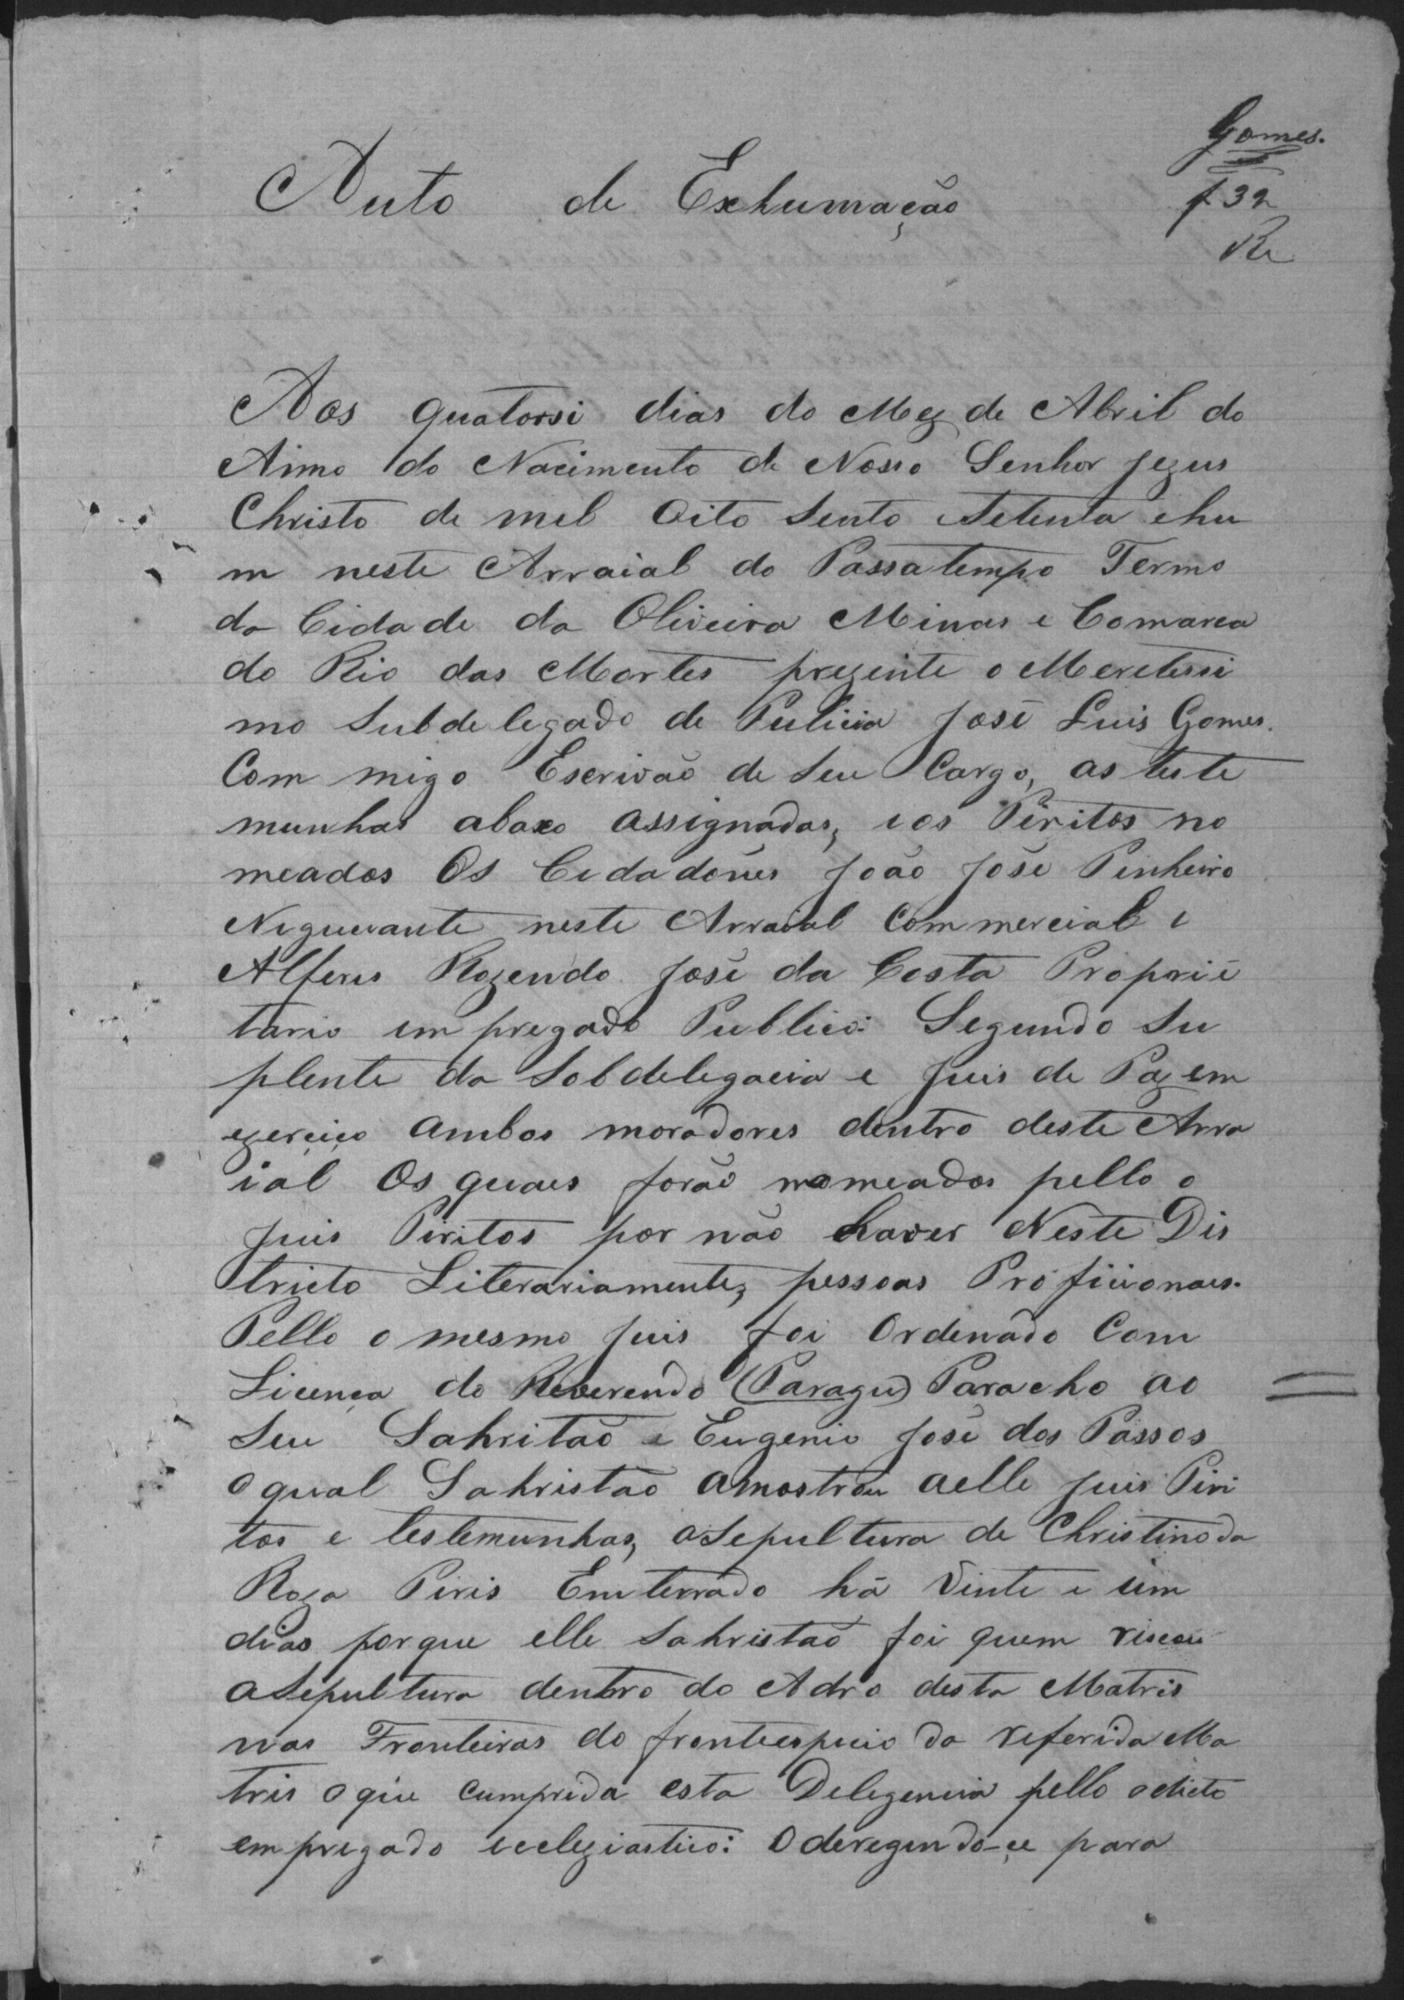 Gomes.
f 32
Auto de Exhumação
Aos quatorsi dias do Mez de Abril do
Anno do Nacimento de Nosso Senhor Jezus
Christo de mil Oito Sento Setenta ehu
m neste Arraial do Passatempo Termo
da Cidade da Oliveira Minas e Comarca
do Rio das Mortes prezente o Meretissi
mo Subdelegado de Pulicia José Luis Gomes.
Com migo Escrivão de Seu Cargo, as teste
munhas abaxo assignadas, e os Piritos no
meados Os Cidadões João José Pinheiro
Neguciante neste Arraial Commercial e
Alferes Rozendo José da Costa Proprie
tario empregado Publico: Segundo Su
plente da Sobdelegacia e Juis de Paz em
ezerciço ambos moradores dentro deste Arra
ial Os quaes forão nomeados pello o
Juis Piritos por não haver Neste Dis
tricto Literariamente, pessoas Proficionaes.
Pello o mesmo Juis foi Ordenado Com
Licença do Reverendo (Paragu) Paracho ao
Seu Sahritão e Eugenio José dos Passos
o qual Sahristão amostrou aelle Juis Piri
tos e testemunhas, aSepultura de Christino da
Roza Piris Emterrado há Vinte e um
dias porque elle Sahristão foi quem riscou
aSepultura dentro do Adro desta Matris
nas Fronteiras do frontespicio da referida Ma
tris o que cumprida esta Deligencia pello o dicto
empregado eccleziastico: O deregindo-çe para